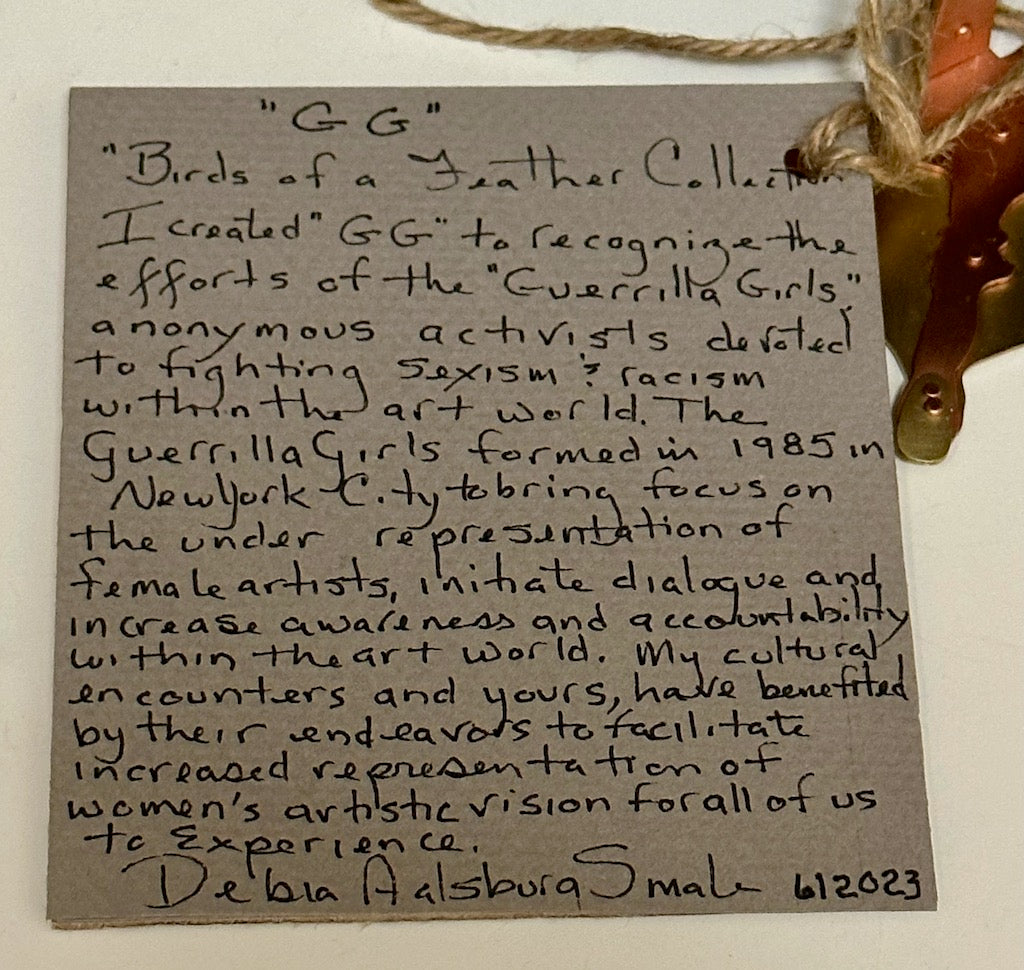 "GG"
"Birds of a Feather Collection
I created "GG" to recognize the
efforts of the "Guerrilla Girls,"
anonymous activists devoted
to fighting sexism & racism
within the art world. The
Guerrilla Girls formed in 1985 in
New York City to bring focus on
the under representation of
female artists, initiate dialogue and
increase awareness and accountability
within the art world. My cultural
encounters and yours, have benefited
by their endeavors to facilitate
increased representation of
women's artistic vision for all of us
to Experience.
Debra Aalsburg Smale 6/2023